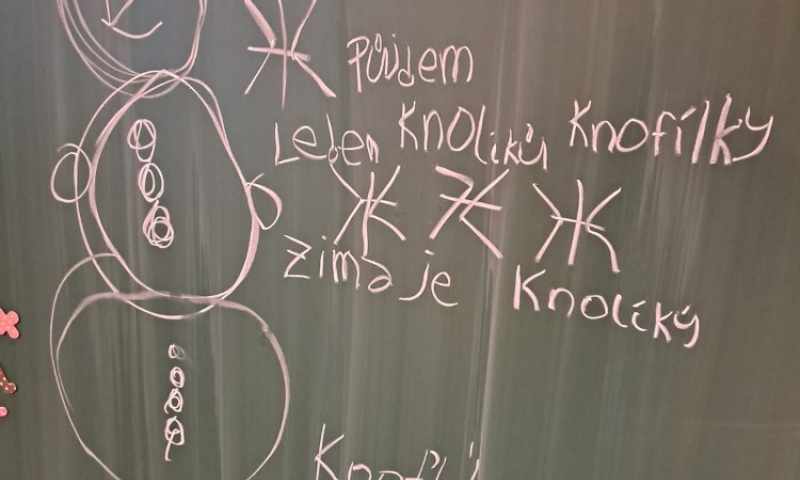 Půjdem
Leden Knolíků Knoflíky
Zima je Knolíky